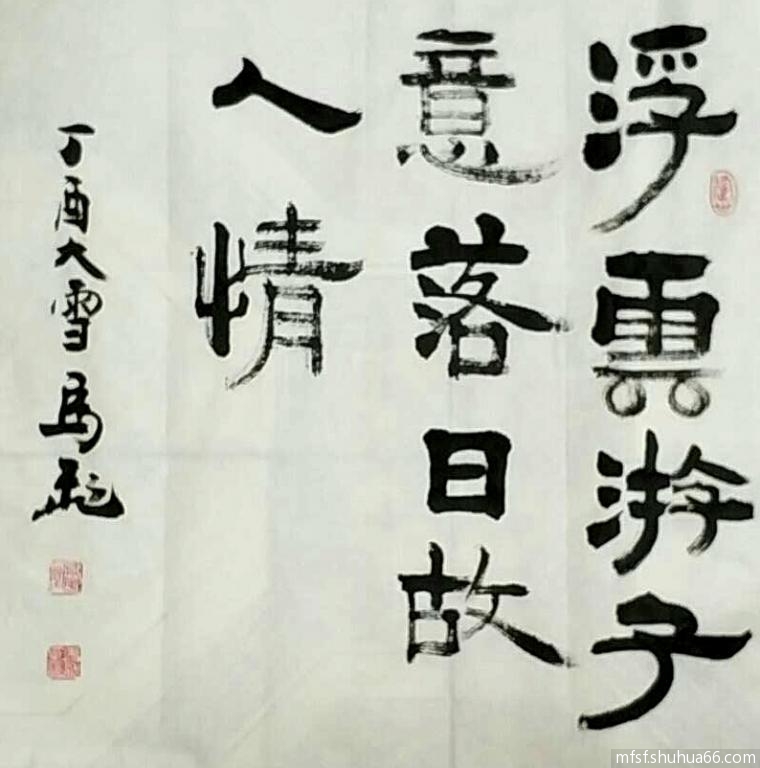 浮雲游子
意落日故
人情
丁酉大雪馬彪
mfsf.shuhua66.com